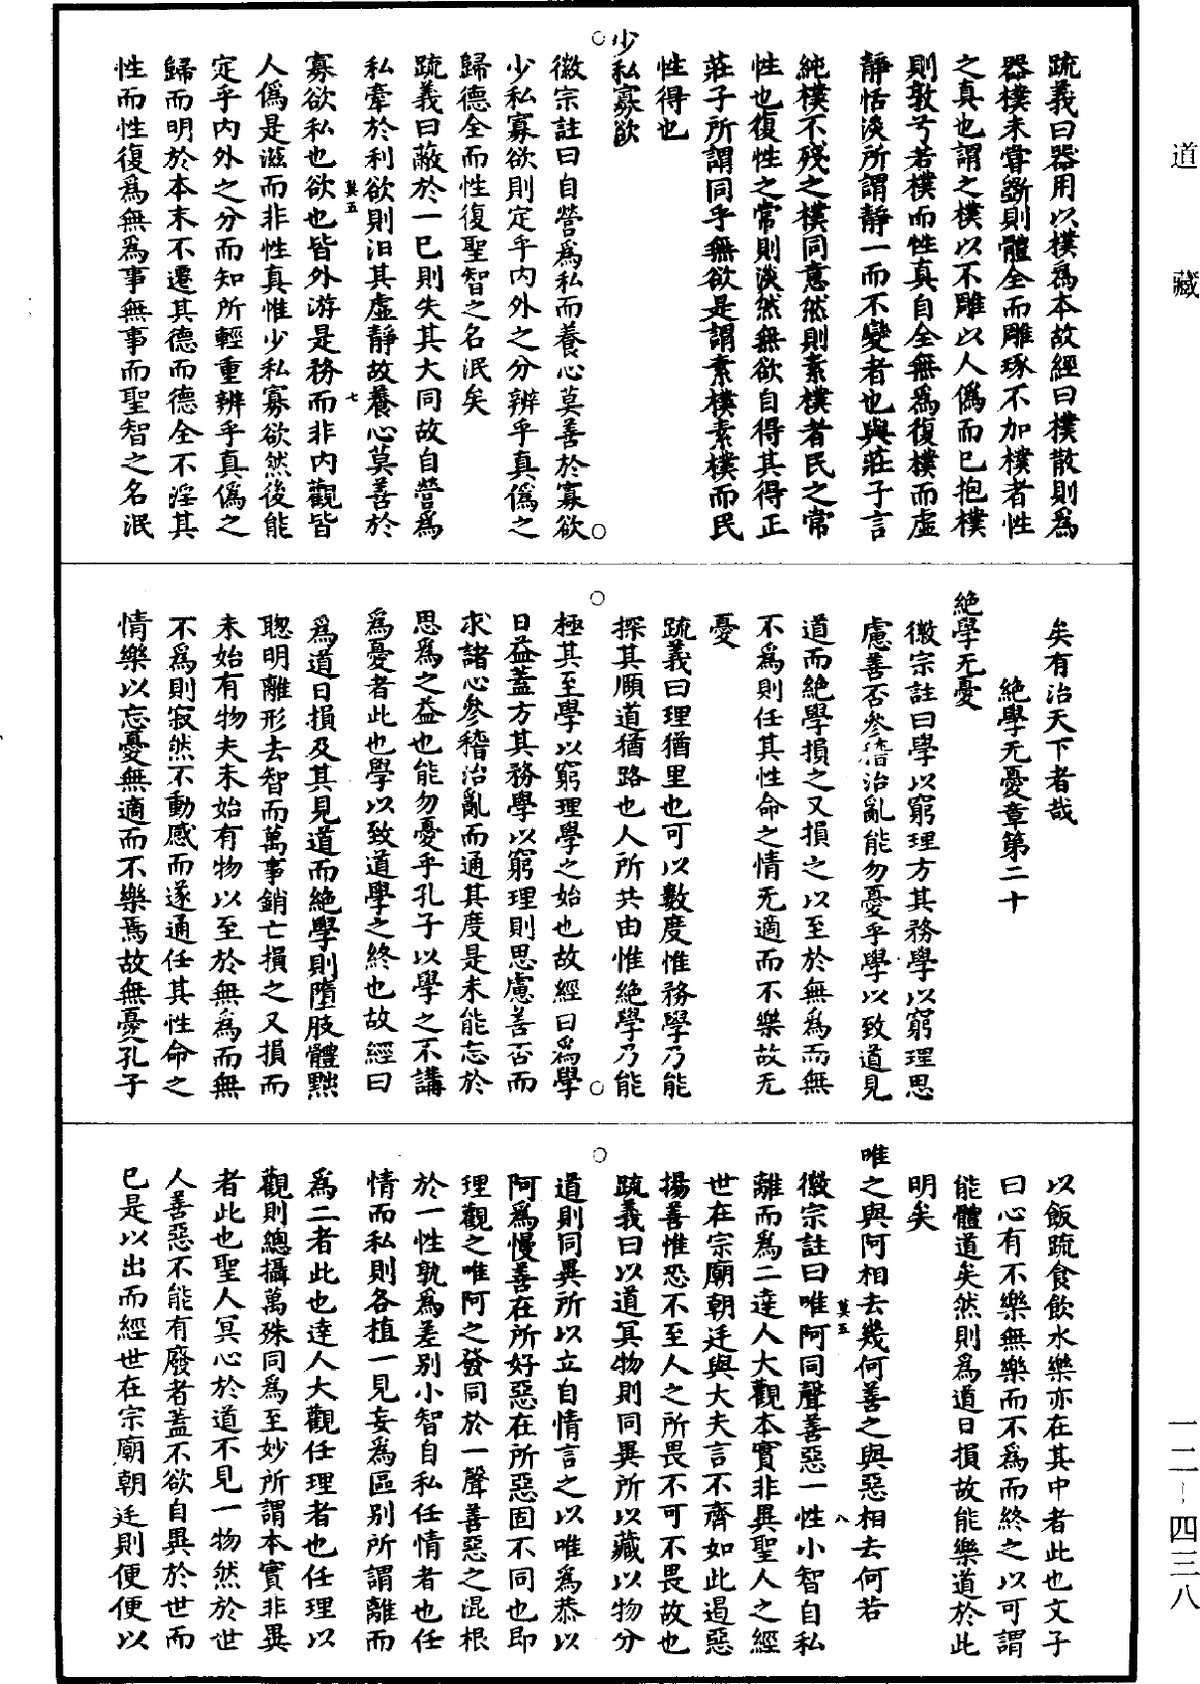 道藏
疏義曰器用以樸爲本故經曰樸散則爲
器樸未甞斲則體全而雕琢不加樸者性
之真也謂之樸以不雕以人僞而已抱樸
則敦兮若樸而性真自全無爲復樸而虛
靜恬淡所謂靜一而不變者也與莊子言
純樸不殘之樸同意然則素樸者民之常
性也復性之常則淡然無欲自得其得正
莊子所謂同乎無欲是謂素樸素樸而民
性得也
少私寡欲
徽宗註曰自營爲私而養心莫善於寡欲
少私寡欲則定乎內外之分辨乎真僞之
歸德全而性復聖智之名泯矣
疏義曰蔽於一已則失其大同故自營爲
私牽於利欲則汨其虛靜故養心莫善於
莫五 七
寡欲私也欲也皆外游是務而非內觀皆
人僞是滋而非性真惟少私寡欲然後能
定乎內外之分而知所輕重辨乎真僞之
歸而明於本末不遷其德而德全不淫其
性而性復爲無爲事無事而聖智之名泯
矣有治天下者哉
絶學无憂章第二十
絶學无憂
徽宗註曰學以窮理方其務學以窮理思
慮善否參稽治亂能勿憂乎學以致道見
道而絶學損之又損之以至於無爲而無
不爲則任其性命之情无適而不樂故无
憂
疏義曰理猶里也可以數度惟務學乃能
探其頤道猶路也人所共由惟絶學乃能
極其至學以窮理學之始也故經曰爲學
日益蓋方其務學以窮理則思慮善否而
求諸心參稽治亂而通其度是未能忘於
思爲之益也能勿憂乎孔子以學之不講
爲憂者此也學以致道學之終也故經曰
爲道日損及其見道而絶學則墮肢體黜
聰明離形去智而萬事銷亡損之又損而
未始有物夫未始有物以至於無爲而無
不爲則寂然不動感而遂通任其性命之
情樂以忘憂無適而不樂焉故無憂孔子
以飯疏食飲水樂亦在其中者此也文子
曰心有不樂無樂而不爲而終之以可謂
能體道矣然則爲道日損故能樂道於此
明矣
唯之與阿相去幾何善之與惡相去何若
莫五 八
徽宗註曰唯阿同聲善惡一性小智自私
離而爲二達人大觀本實非異聖人之經
世在宗廟朝廷與大夫言不齊如此遏惡
揚善惟恐不至人之所畏不可不畏故也
疏義曰以道冥物則同異所以藏以物分
道則同異所以立自情言之以唯爲恭以
阿爲慢善在所好惡在所惡固不同也即
理觀之唯阿之發同於一聲善惡之混根
於一性孰爲差別小智自私任情者也任
情而私則各植一見妄爲區別所謂離而
爲二者此也達人大觀任理者也任理以
觀則總攝萬殊同爲至妙所謂本實非異
者此也聖人冥心於道不見一物然於世
人善惡不能有廢者蓋不欲自異於世而
已是以出而經世在宗廟朝廷則便便以
一二-四三八